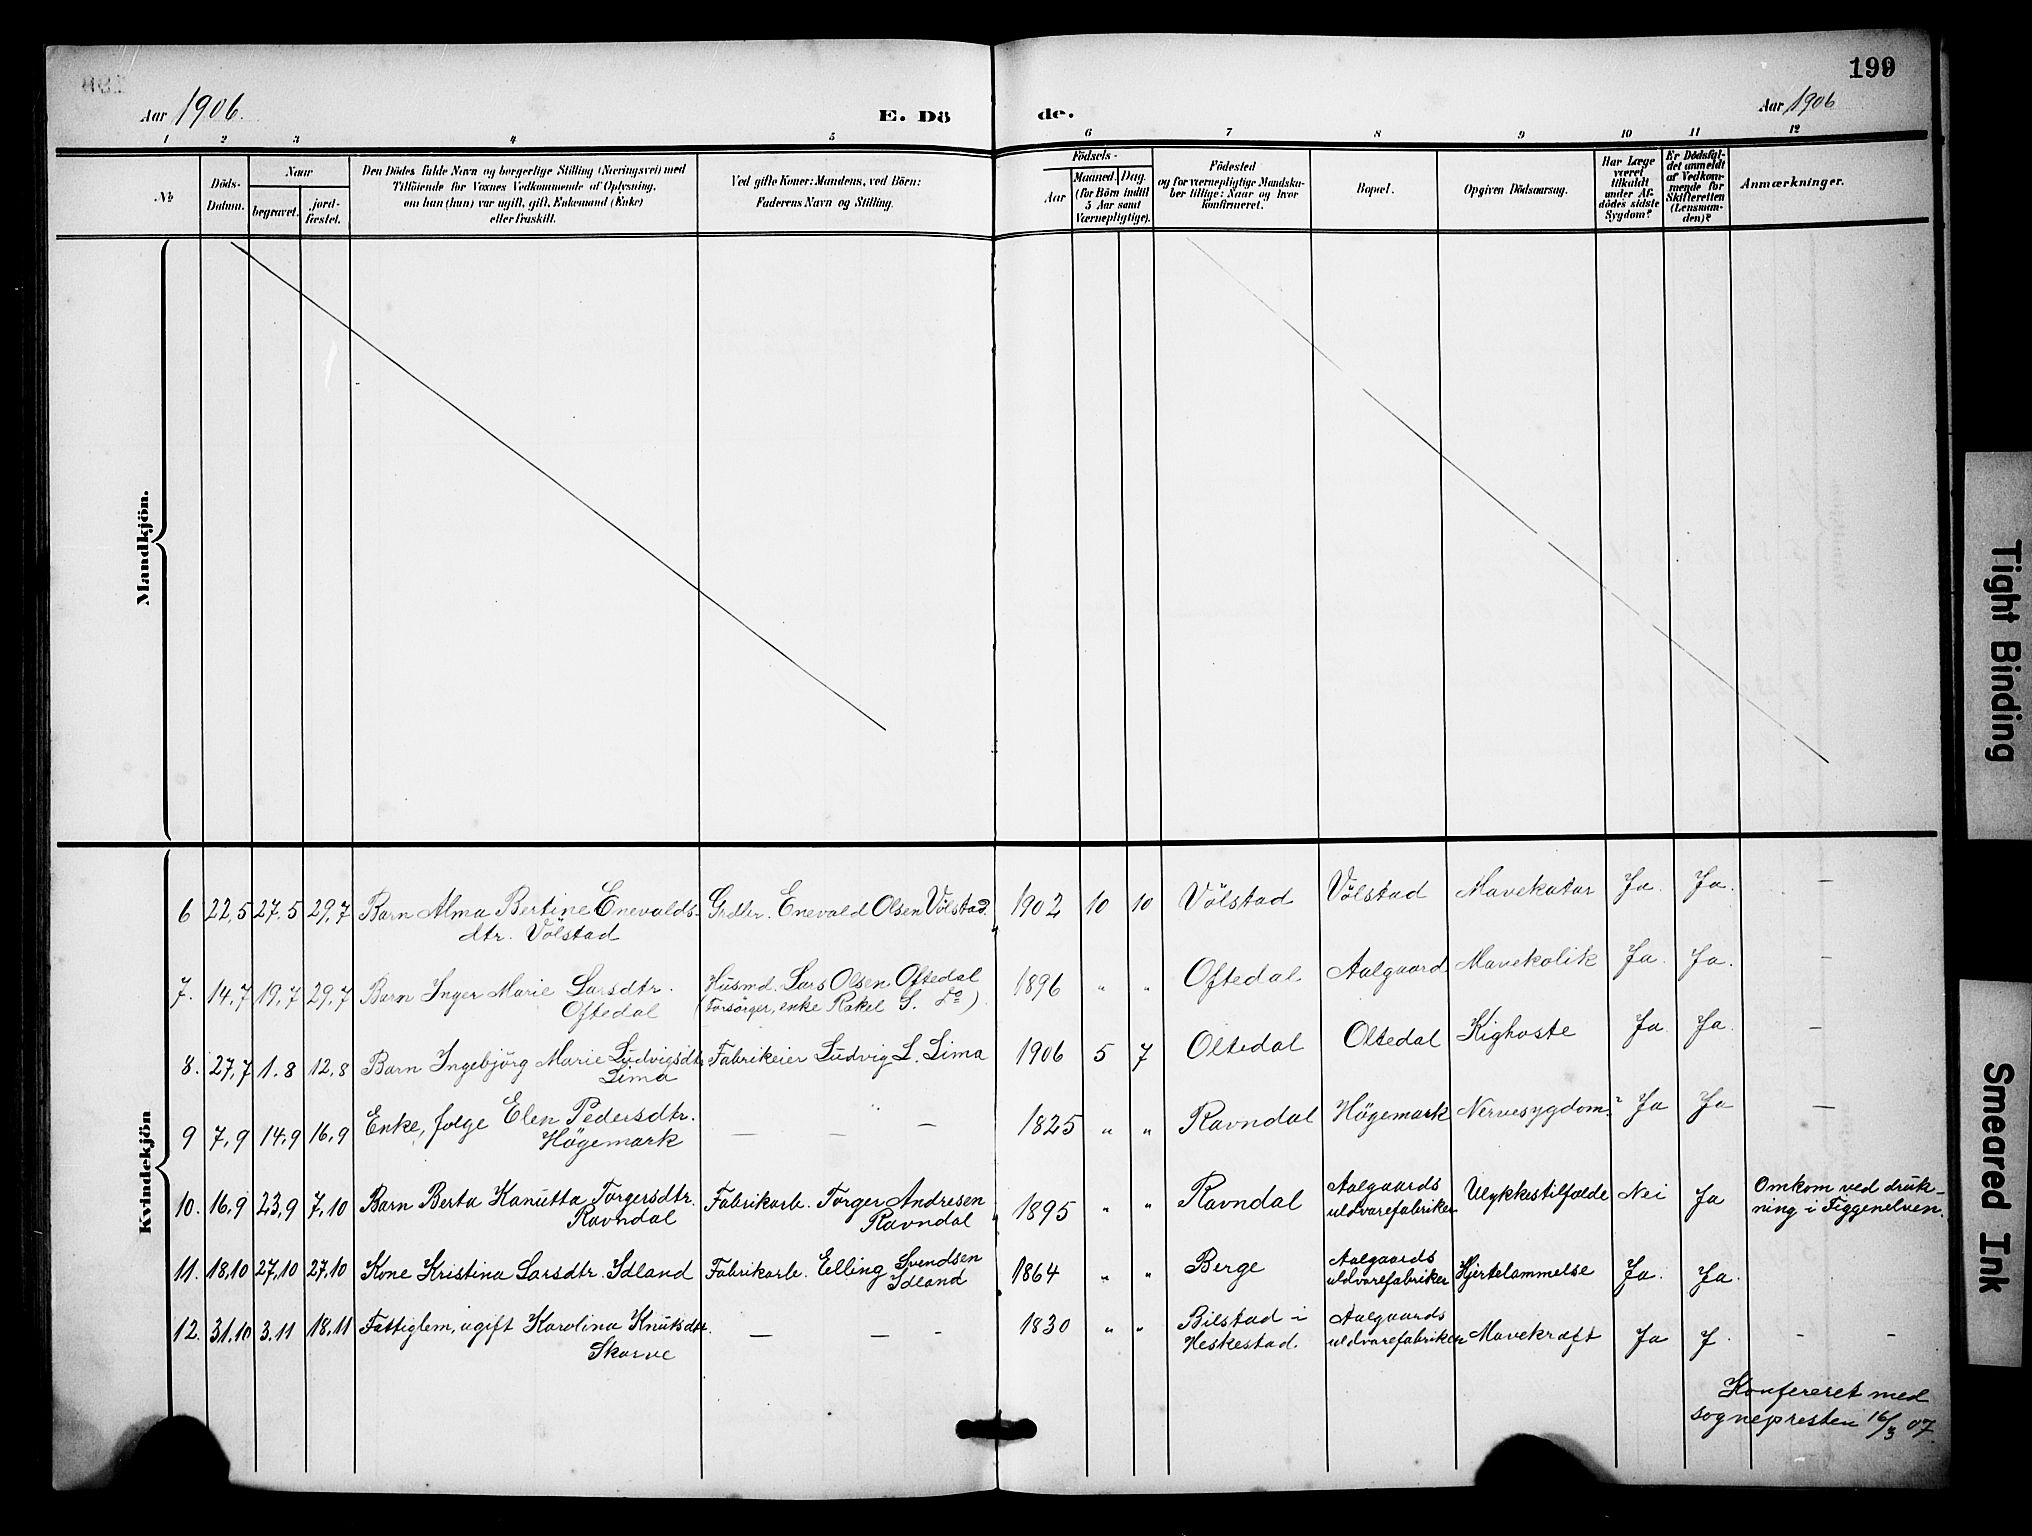 199
Aar 1906.
E. Dö
de.
Aar 1906
1 2 3 4 5 6 7 8 9 10 11 12
No
Döds-
Datum.
Naar
begravet.
jord-
fæstet.
Den Dödes fulde Navn og borgerlige Stilling (Næringsvei) med
Tilföiende for Voxnes Vedkommende af Oplysning,
om han (hun) var ugift, gift, Enkemand (Enke)
eller fraskilt.
Ved gifte Koner: Mandens, ved Börn:
Faderens Navn og Stilling.
Födsels-
Aar
Maaned. Dag.
(for Börn indtil
5 Aar samt
Værnepligtige).
Födested
og for værnepligtige Mandska-
ber tillige: Naar og hvor
konfirmeret.
Bopæl.
Opgiven Dödsaarsag.
Har Læge
været
tilkaldt
under Af-
dödes sidste
Sygdom?
Er Dödsfal-
det anmeldt
af Vedkom-
mende for
Skifteretten
(Lensman-
den)?
Anmærkninger.
Mandkjön.
Kvindekjön
6 22,5 27.5 29,7 Barn Alma Bertine Enevalds- Grdbr. Enevald Olsen Völstad. 1902 10 10 Völstad Völstad Mavekatar Ja. Ja. —
dtr. Völstad
7. 14,7 19,7 29,7 Barn Inger Marie Larsdtr. Husmd. Lars Olsen Oftedal 1896 " " Oftedal Aalgaard Mavekolik Ja. Ja. —
Oftedal (Forsörger, enke Rakel G. do)
8. 27,7 1.8 12,8 Barn Ingebjörg Marie Ludvigsdtr Fabrikeier Ludvig L. Lima 1906 5 7 Oltedal Oltedal Kighoste Ja. Ja. —
Lima
9 7,9 14,9 16,9 Enke, folge Elen Pedersdtr. — — — 1825 " " Ravndal Högemark Nervesygdom? Ja Ja —
Högemark
10. 16,9 23,9 7,10 Barn Berta Kanutta Torgersdtr. Fabrikarb. Torger Andresen 1895 " " Ravndal Aalgaards Ulykkestilfælde Nei Ja Omkom ved druk-
Ravndal Ravndal uldvarefabriker ning i Figgenelven.
11. 18,10 27,10 27,10 Kone Kristina Larsdtr. Idland Fabrikarb. Elling Svendsen 1864 " " Berge Aalgaards Hjertelammelse Ja. Ja.
Idland uldvarefabriker
12. 31.10 3.11 18,11 Fattiglem, ugift Karolina Knutsdtr. — — - 1830 " " Bilstad i Aalgaards Mavekræft Ja J. - -
Skarve Heskestad. uldvarefabriken
Konfereret med
sognepresten 16/3 07.
Tight Binding
Smeared Ink